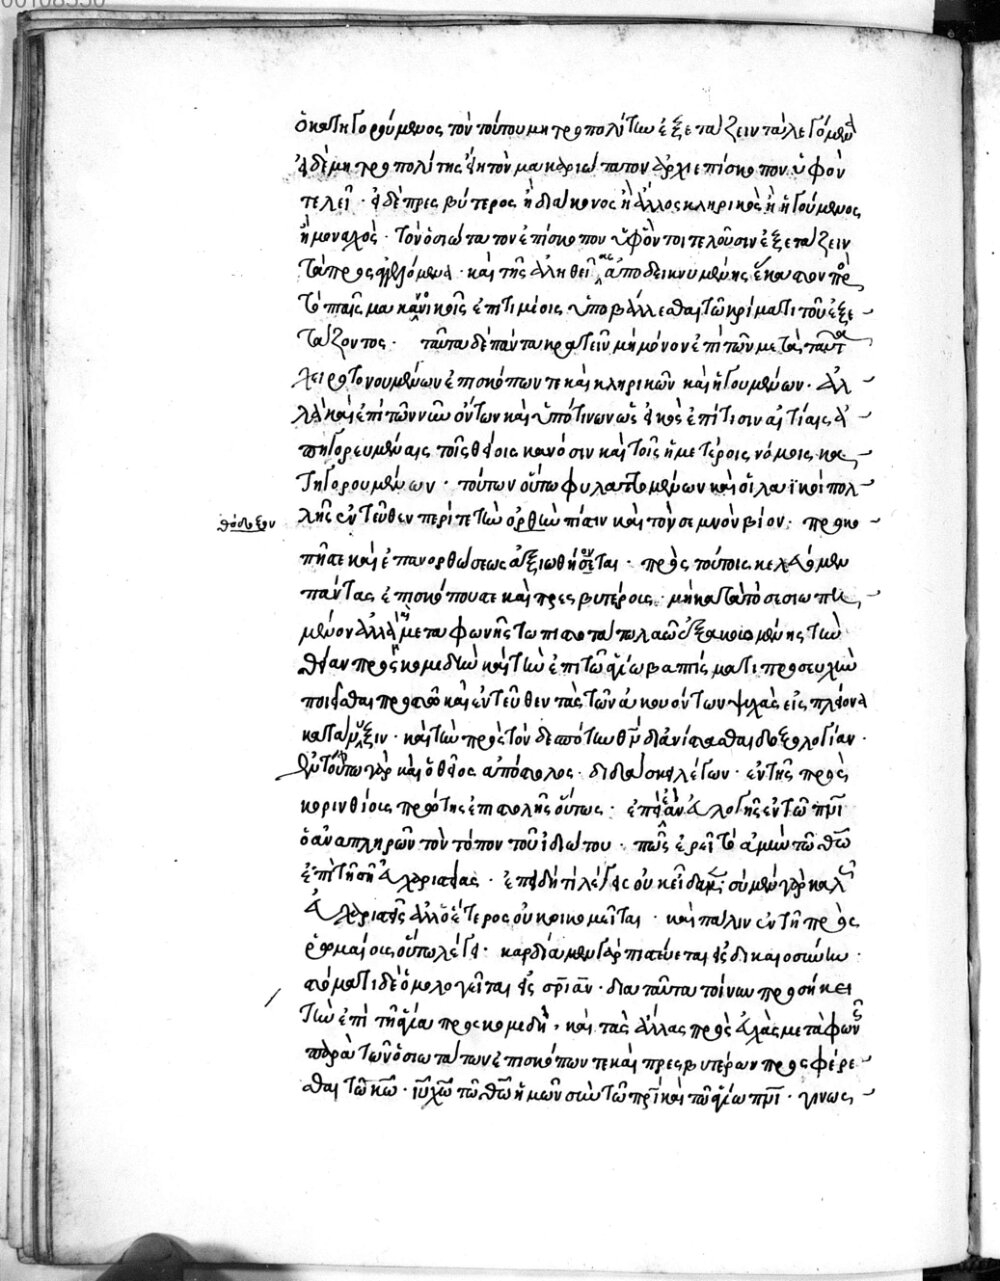 ὁ κατηγορούμενος τὸν τούτου μητροπολίτην ἐξετάζειν τὰ λεγόμενα
εἰ δὲ μητροπολίτης εἴη τὸν μακαριώτατον ἀρχιεπίσκοπον ὑφ' ὃν
τελεῖ · εἰ δὲ πρεσβύτερος ἢ διάκονος ἢ ἄλλος κληρικὸς ἢ ἡγούμενος
ἢ μοναχὸς · τὸν ὁσιώτατον ἐπίσκοπον ὑφ' ὅν τοι τελοῦσιν ἐξετάζειν
τὰ προσαγγελλόμενα · καὶ τῆς ἀληθείας ἀποδεικνυμένης ἕκαστον πρὸς
τὸ πταῖσμα κανονικοῖς ἐπιτιμίοις ὑποβάλλεσθαι τῷ κρίματι τοῦ ἐξε
τάζοντος · ταῦτα δὲ πάντα κρατεῖν μὴ μόνον ἐπὶ τῶν μετὰ ταῦτα
χειροτονουμένων ἐπισκόπων τε καὶ κληρικῶν καὶ ἡγουμένων · ἀλ
λὰ καὶ ἐπὶ τῶν νῦν ὄντων καὶ ὑπό τινων ὡς εἰκὸς ἐπί τισιν αἰτίαις ἀ
πηγορευμέναις τοῖς θείοις κανόσιν καὶ τοῖς ἡμετέροις νόμοις κα
τηγορουμένων · τούτων οὕτω φυλαττομένων καὶ οἱ λαϊκοὶ πολ
λῆς ἐντεῦθεν περί τε τὴν ὀρθὴν πίστιν καὶ τὸν σεμνὸν βίον · προκο
πῆς τε καὶ ἐπανορθώσεως ἀξιωθήσεται · πρὸς τούτοις κελεύομεν
πάντας ἐπισκόπους τε καὶ πρεσβυτέροις · μὴ κατὰ τὸ σεσιωπη
μένον ἀλλὰ μετὰ φωνῆς τῷ πιστοτάτῳ λαῷ ἐξακουομένης τὴν
θείαν προσκομιδὴν καὶ τὴν ἐπὶ τῷ ἁγίῳ βαπτίσματι προσευχὴν
ποιεῖσθαι πρὸς τὸ καὶ ἐντεῦθεν τὰς τῶν ἀκουόντων ψυχὰς εἰς πλείονα
κατάνυξιν · καὶ τὴν πρὸς τὸν δεσπότην θεὸν διανίστασθαι δοξολογίαν ·
οὕτω γὰρ καὶ ὁ θεῖος ἀπόστολος · διδάσκει λέγων · ἐν τῆς πρὸς
κορινθίοις πρώτης ἐπιστολῆς οὕτως · ἐπεὶ ἐὰν εὐλογῇς ἐν τῷ πνι
ὁ ἀναπληρῶν τὸν τόπον τοῦ ἰδιώτου · πῶς ἐρεῖ τὸ ἀμὴν τῷ θῶ
ἐπὶ τῇ σῇ εὐχαριστίας · ἐπειδὴ τί λέγεις οὐκ εἶδεν · σὺ μὲν γὰρ καλῶς
εὐχαριστεῖς ἀλλ' ὁ ἕτερος οὐκ οἰκομεῖται · καὶ πάλιν ἐν τῇ πρὸς
ῥωμαίοις οὕτω λέγει · καρδίᾳ μὲν γὰρ πιστεύεται εἰς δικαιοσύνην ·
στόματι δὲ ὁμολογεῖται εἰς σρίαν · δια ταῦτα τοίνυν προσήκει
τὴν ἐπὶ τῇ ἁγίᾳ προσκομιδῇ · καὶ τὰς ἄλλας προσευχὰς μετὰ φωνῆς
παρὰ τῶν ὁσιωτάτων ἐπισκόπων τε καὶ πρεσβυτέρων προσφέρε
σθαι τῷ κῶ · ιῦ χῶ τῷ θῶ ἡμῶν σὺν τῷ πρὶ καὶ τῷ ἁγίῳ πνι · γινωσ